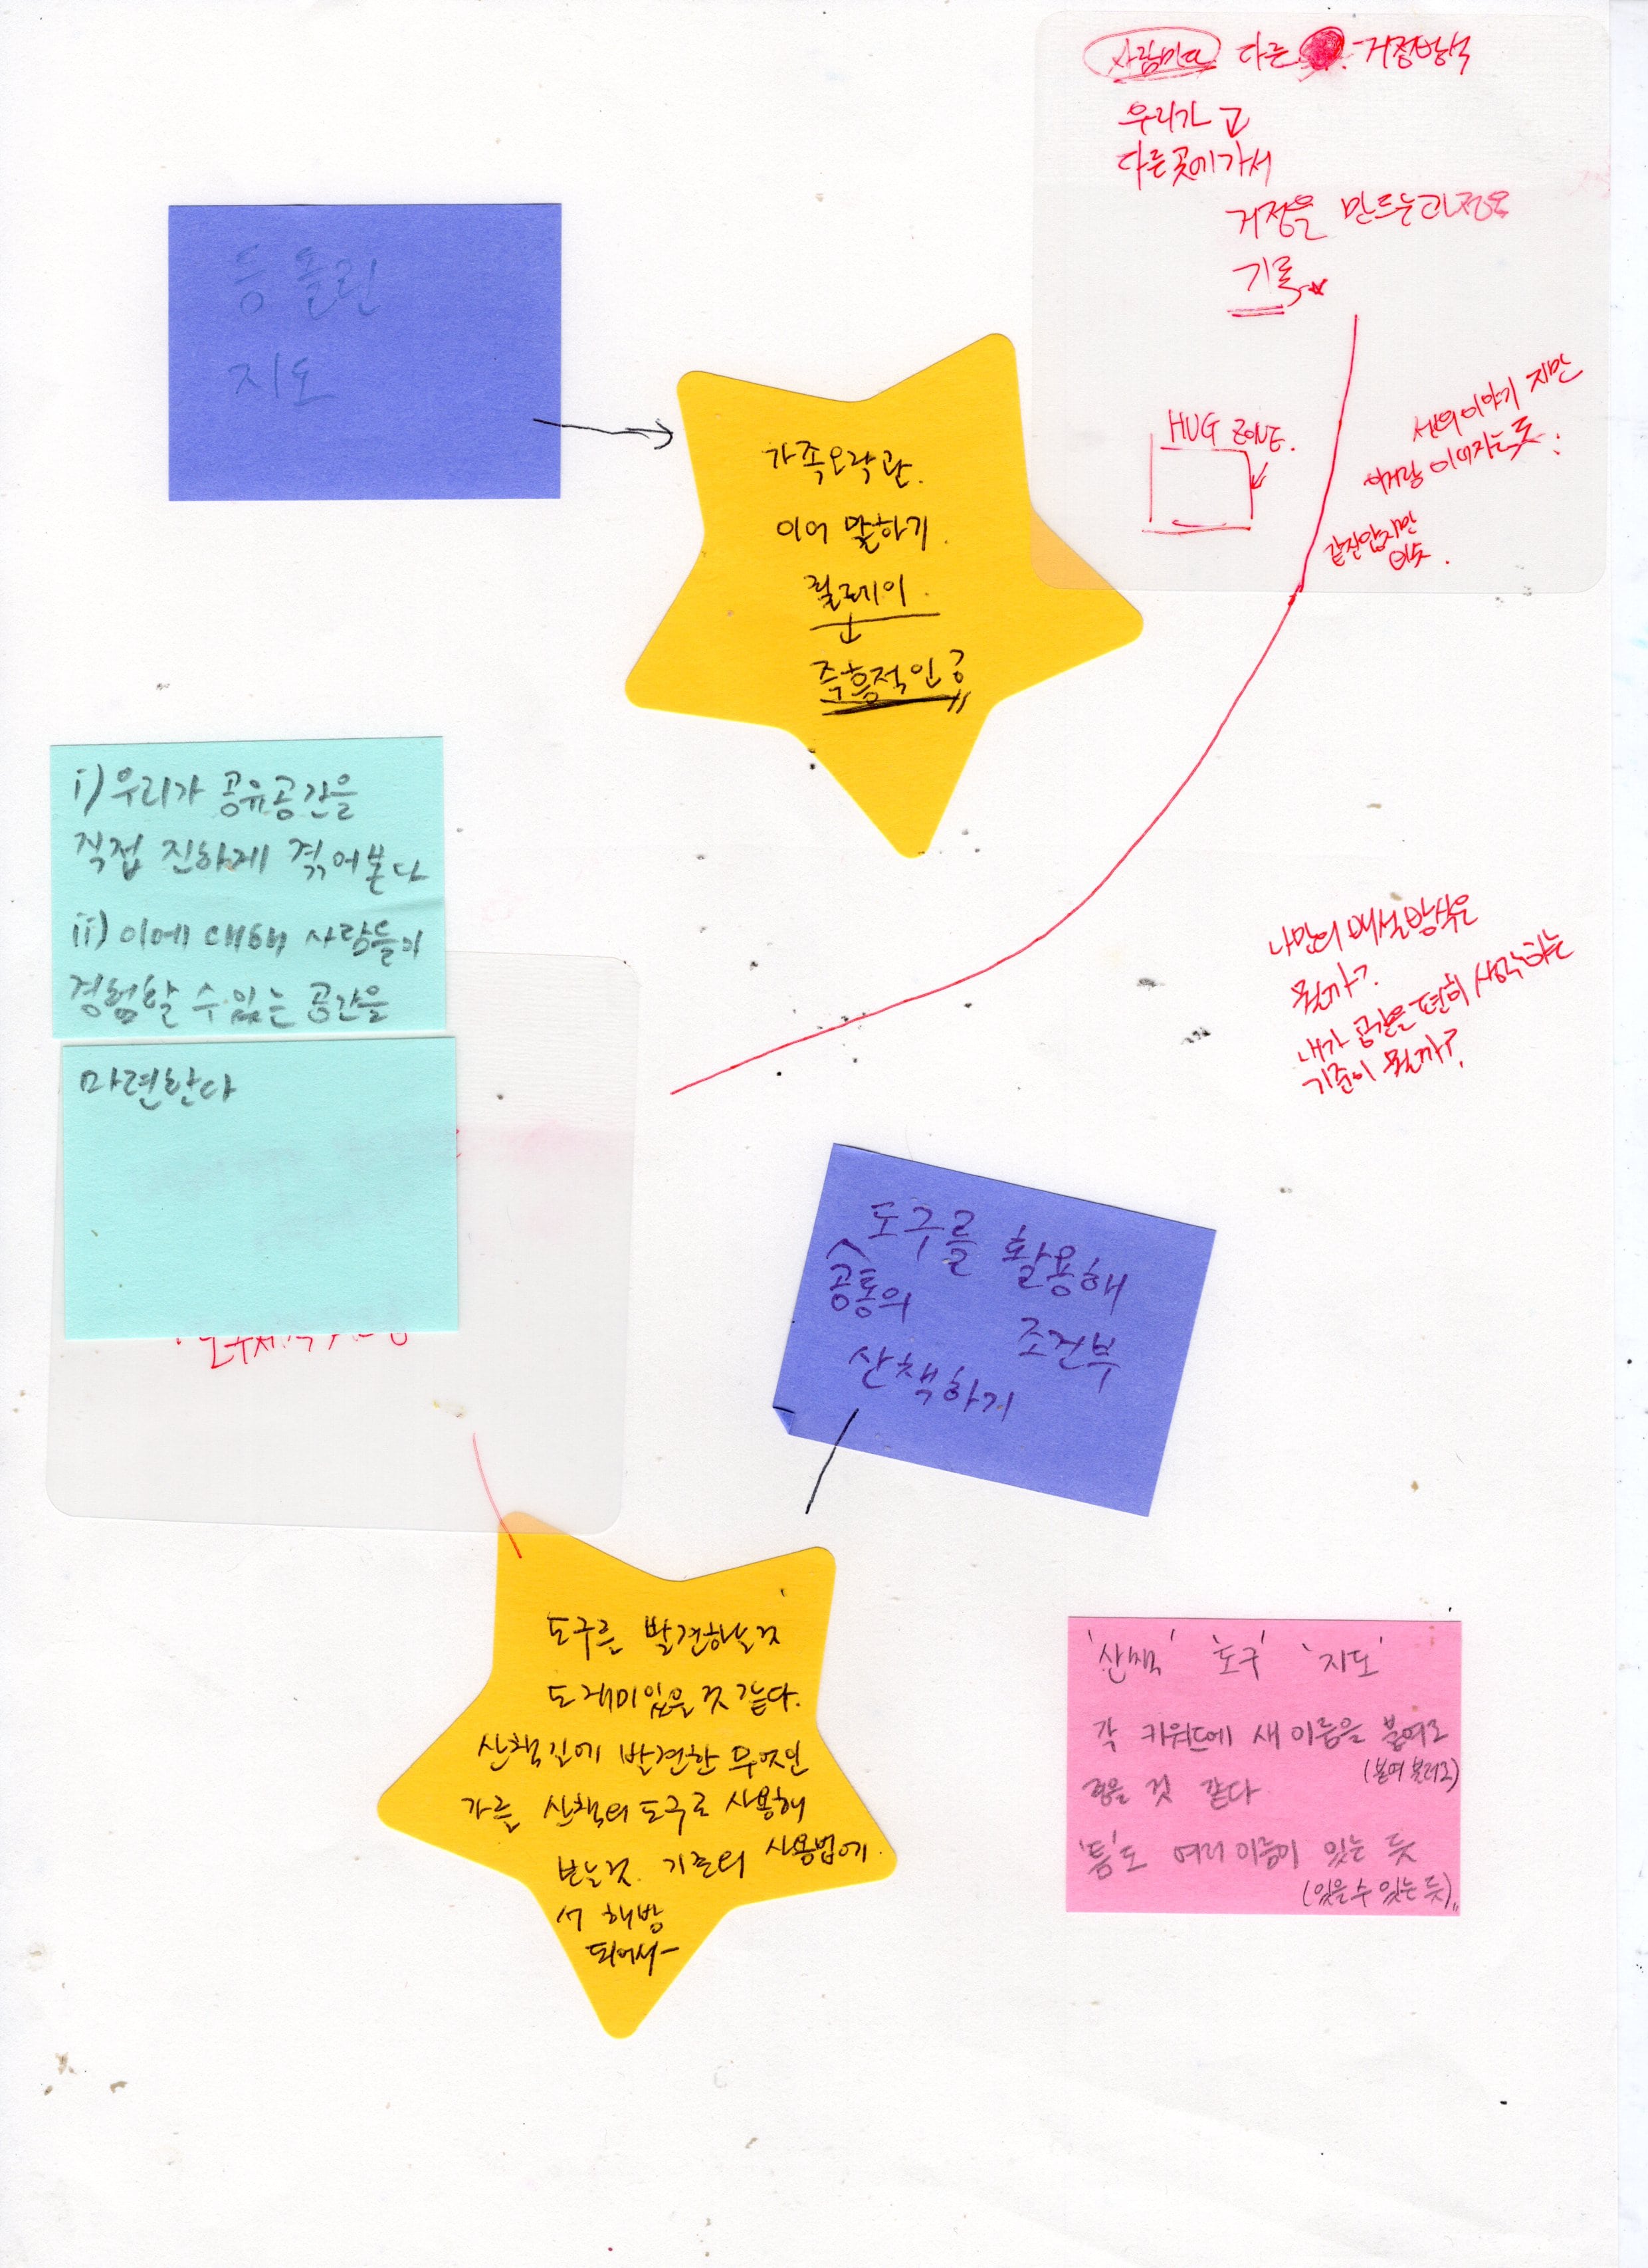 사람마다 다른 거점방식
우리가 고
다른곳에가서
거점을 만드는과정을
기록
등 돌린
지도
가족오락관.
이어 말하기.
릴레이.
즉흥적인?
HUG ZONE.
셋의이야기 지만
이어지는듯.
같진않지만
비슷.
i) 우리가 공유공간을
직접 진하게 겪어본다
ii) 이에 대해 사람들이
경험할 수 있는 공간을
마련한다
나만의 배설방식은
뭘까?
내가 공간을 편히 생각하는
기준이 뭘까?
도구를 활용해
공통의
조건부
산책하기
도구를 발견하는것
도 재미있을 것 같다.
산책길에 발견한 무엇인
가를 산책의 도구로 사용해
보는것. 기존의 사용법에
서 해방
되어서-
'산책' '도구' '지도'
각 키워드에 새 이름을 붙여도
(붙여 불러도)
좋을 것 같다
'틈'도 여러 이름이 있는 듯
(있을 수 있는 듯)